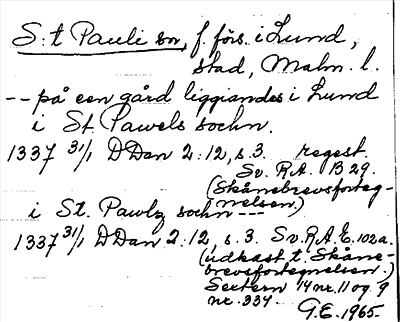 S:t Pauli sn, f. förs. i Lund,
stad, Malm. l.
-- på een gård liggiandes i Lund
i St. Pawels sochn.
1337 31/1 DDan 2:12, s. 3. regest.
Sv. R.A. B 29.
(Skånebrevsforteg-
nelsen.)
i St. Pawlz sochn ---
1337 31/1 DDan 2:12, s. 3. Sv. R.A. E. 102a.
(udkast t. Skåne-
brevsfortegnelsen.)
Sextern 14 nr. 11 og 9
nr. 334.
G.E. 1965.